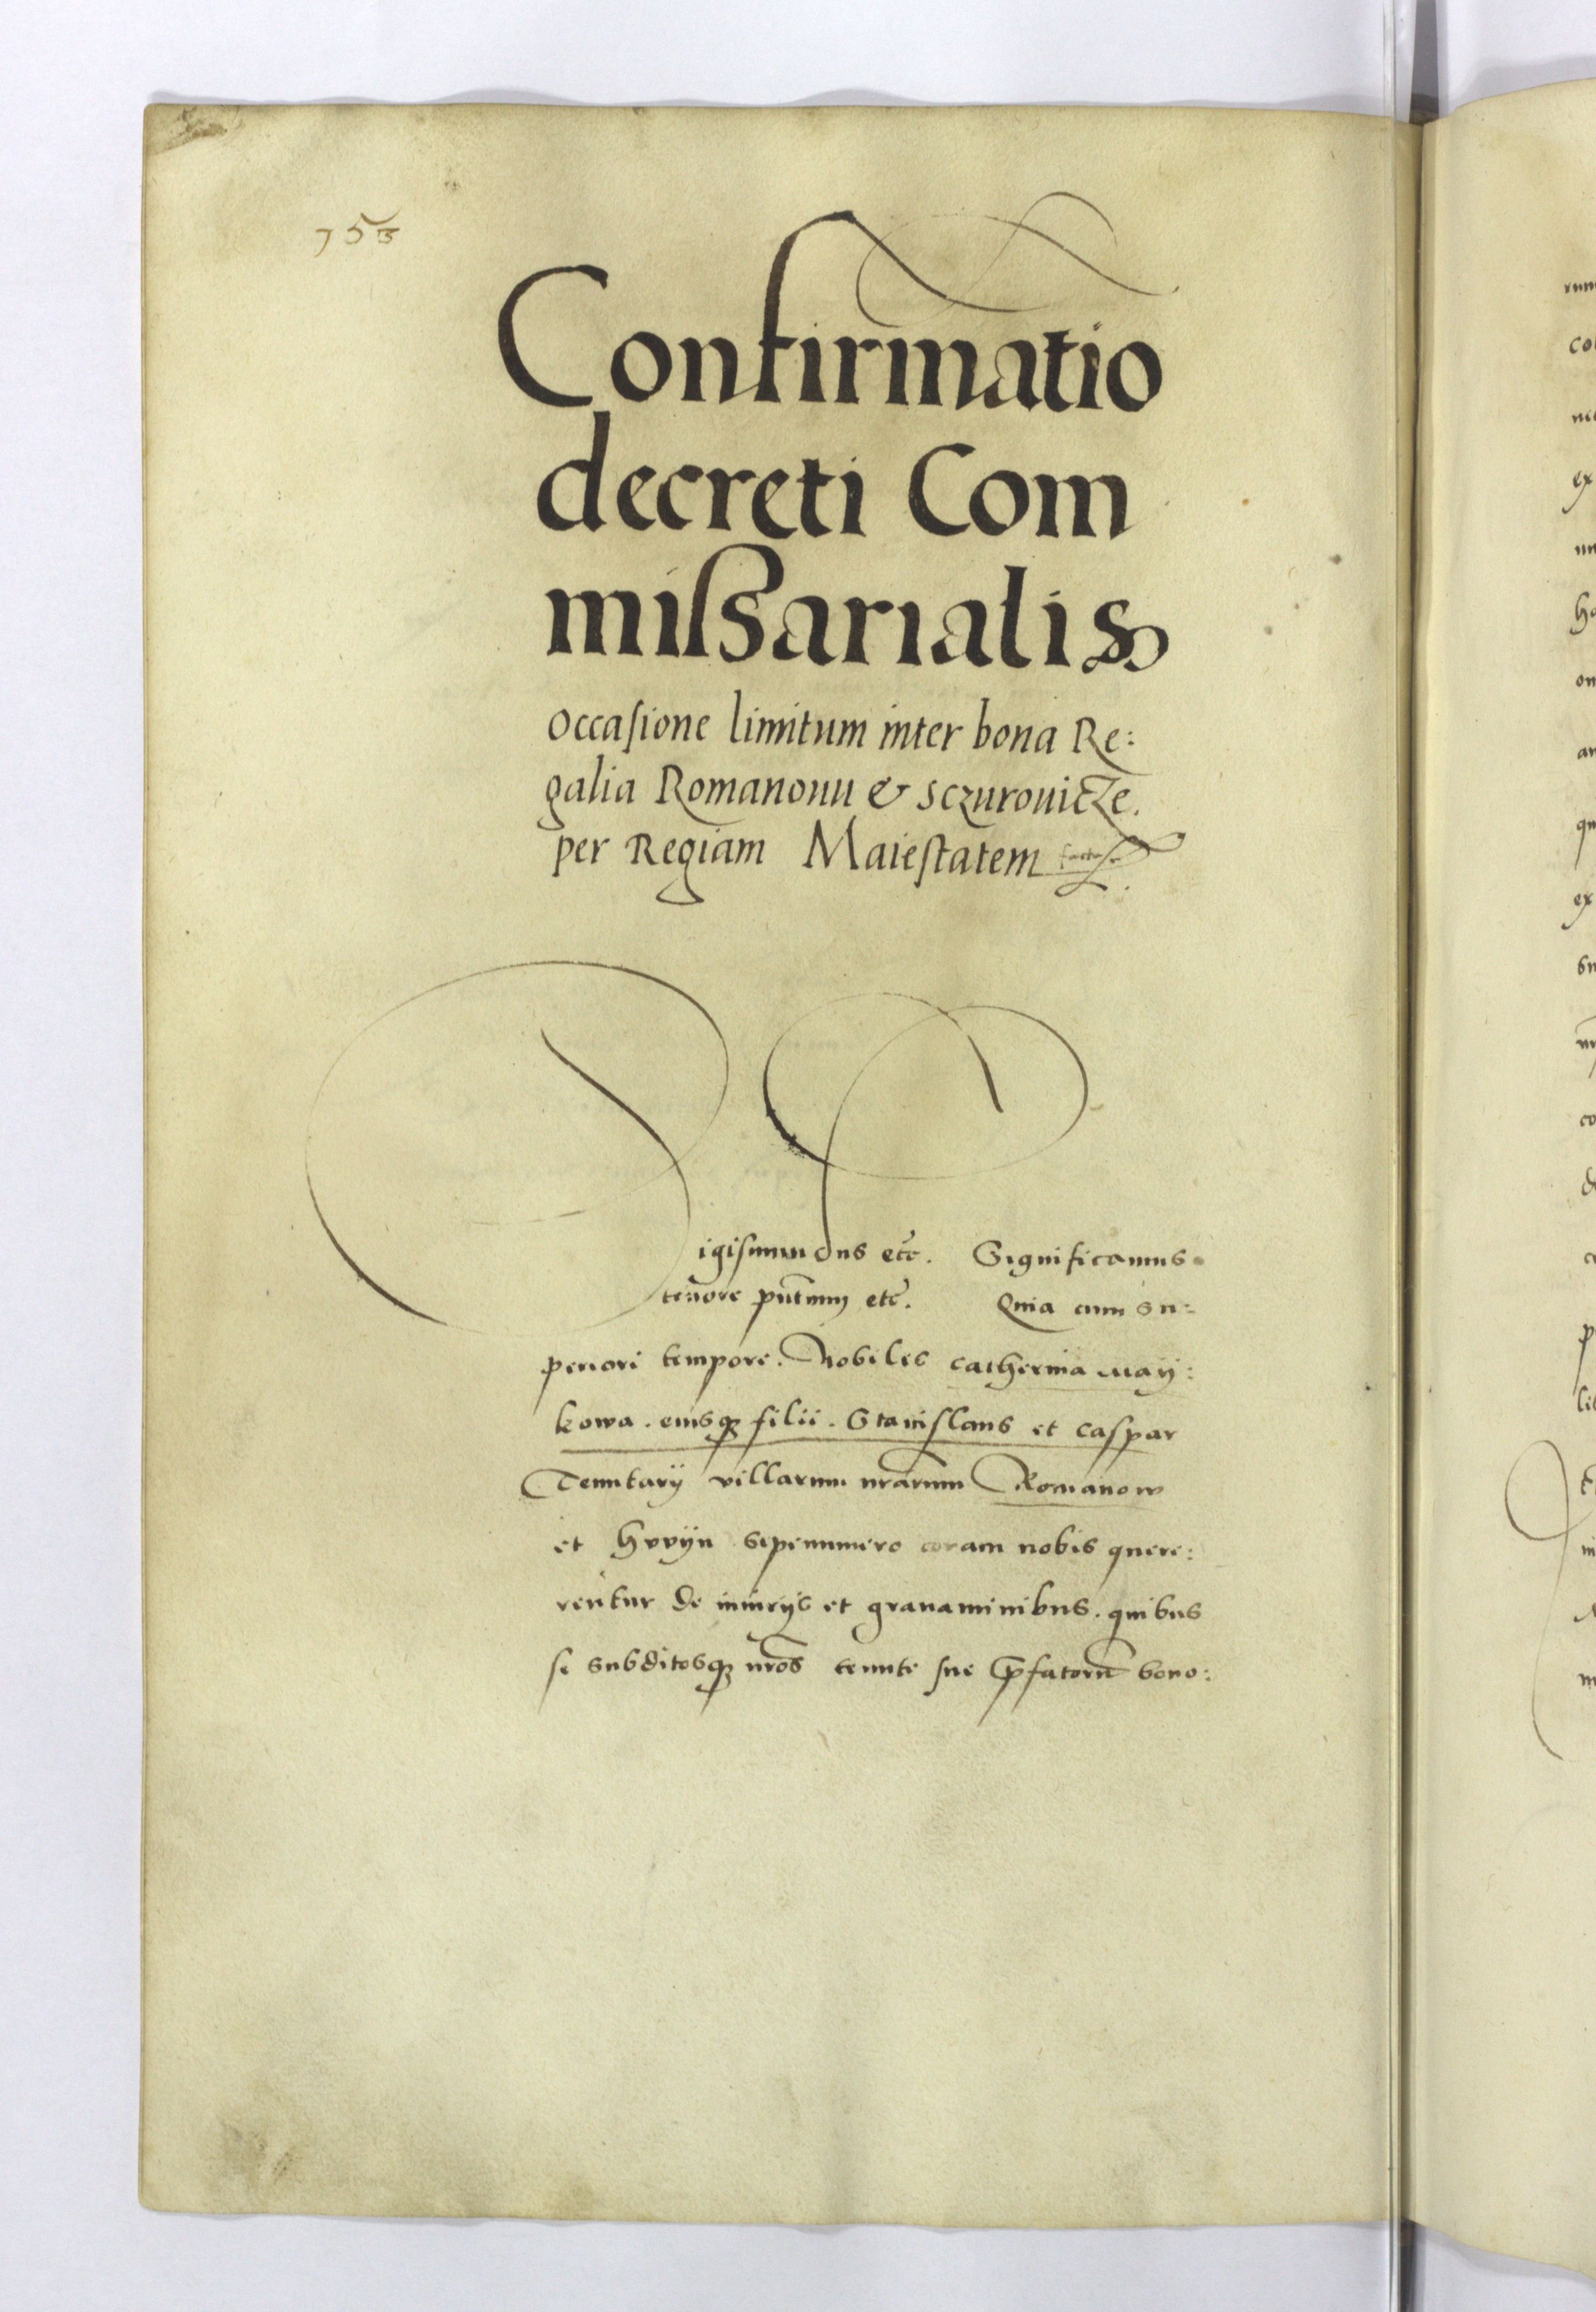 753
Confirmatio
decreti Com
mißarialis
occasione limitum inter bona Re:
galia Romanouu & sczurouicze.
per Regiam Maiestatem facta
igismundus etc. Significamus
tenore pntium etc. Quia cum su:
periori tempore. Nobiles Catherina May:
kowa. eiusq filii. Stanislaus et Caspar
Tenutarij villarum nrarum Romanow
et Hvvijn sepenumero coram nobis quere:
rentur de iniurijs et grauaminibus. quibus
se subditosq nros tenute sue pfatorum bono: